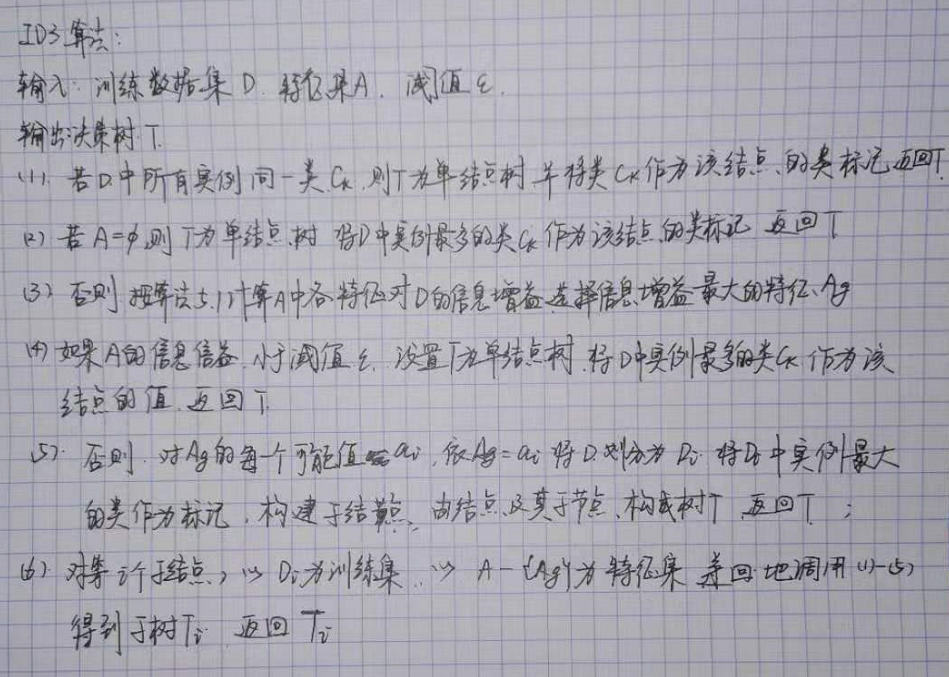 ID3算法:
输入: 训练数据集D. 特征集A. 阈值ε.
输出:决策树T.
(1). 若D中所有实例同一类Ck,则T为单结点树 并将类Ck作为该结点的类标记,返回T
(2) 若A=φ,则T为单结点树 将D中实例最多的类Ck作为该结点的类标记 返回T
(3) 否则 按算法5.1计算A中各特征对D的信息增益,选择信息增益最大的特征Ag
(4) 如果A的信息信益小于阈值ε. 设置T为单结点树.将D中实例最多的类Ck作为该
结点的值,返回T.
(5). 否则.对Ag的每一个可能值ai,依Ag=ai将D划分为Di.将Di中实例最大
的类作为标记,构建子结点,由结点及其子节点,构成树T 返回T;
(6) 对第i个子结点,以Di为训练集,以A-{Ag}为特征集 回地调用(1)-(5)
得到子树Ti 返回Ti